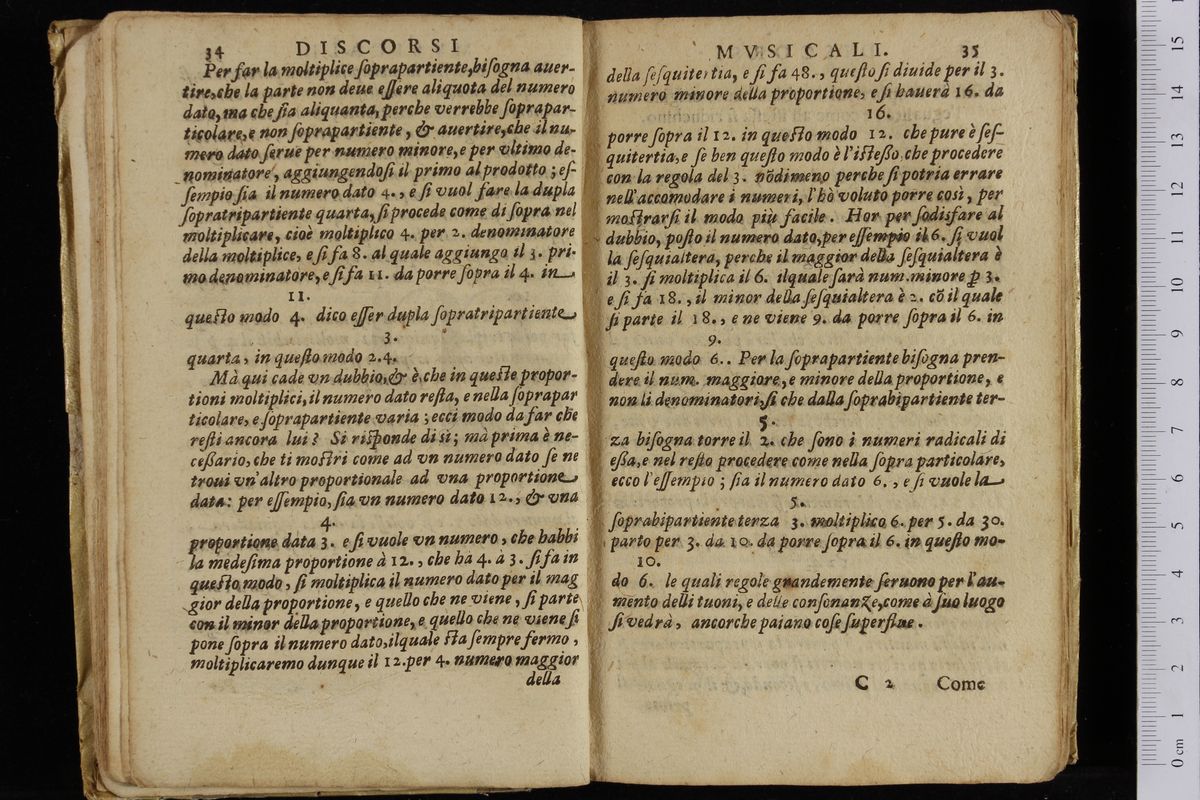 34 DISCORSI
Per far la moltiplice ſoprapartiente,biſogna auer-
tire,che la parte non deue eſſere aliquota del numero
dato, ma che ſia aliquanta, perche verrebbe ſoprapar-
ticolare,e non ſoprapartiente, & auertire,che il nu-
mero dato ſerue per numero minore,e per vltimo de-
nominatore, aggiungendoſi il primo al prodotto ; eſ-
ſempio ſia il numero dato 4., e ſi vuol fare la dupla
ſopratripartiente quarta, ſi procede come di ſopra nel
moltiplicare, cioè moltiplico 4. per 2. denominatore
della moltiplice, e ſi fa 8. al quale aggiungo il 3. pri-
mo denominatore, e ſi fa 11. da porre ſopra il 4. in
11.
queſto modo 4. dico eſſer dupla ſopratripartiente
3.
quarta, in queſto modo 2.4.
Mà qui cade vn dubbio,& è,che in queſte propor-
tioni moltiplici,il numero dato reſta, e nella ſoprapar
ticolare, e ſoprapartiente varia ; ecci modo da far che
reſti ancora lui ? Si riſponde di sì ; mà prima è ne-
ceßario, che ti moſtri come ad vn numero dato ſe ne
troui vn'altro proportionale ad vna proportione
data: per eſſempio, ſia vn numero dato 12., & vna
4.
proportione data 3. e ſi vuole vn numero, che habbi
la medeſima proportione à 12., che hà 4. à 3. ſi fa in
queſto modo, ſi moltiplica il numero dato per il mag
gior della proportione, e quello che ne viene, ſi parte
con il minor della proportione, e quello che ne viene ſi
pone ſopra il numero dato,ilquale ſta ſempre fermo,
moltiplicaremo dunque il 12.per 4. numero maggior
della
MVSICALI. 35
della ſeſquitertia, e ſi fa 48., queſto ſi diuide per il 3.
numero minore della proportione, e ſi hauerà 16. da
16.
porre ſopra il 12. in queſto modo 12. che pure è ſeſ-
quitertia,e ſe ben queſto modo è l'iſteßo che procedere
con la regola del 3. nōdimeno perche ſi potria errare
nell'accomodare i numeri, l'hò voluto porre così, per
moſtrarſi il modo più facile. Hor per ſodisfare al
dubbio, poſto il numero dato,per eſſempio il 6. ſi vuol
la ſeſquialtera, perche il maggior della ſeſquialtera è
il 3. ſi moltiplica il 6. ilquale ſarà num.minore ꝑ 3.
e ſi fa 18., il minor della ſeſquialtera è 2. cō il quale
ſi parte il 18., e ne viene 9. da porre ſopra il 6. in
9.
queſto modo 6.. Per la ſoprapartiente biſogna pren-
dere il num. maggiore, e minore della proportione, e
non li denominatori,ſi che dalla ſoprabipartiente ter-
5.
za biſogna torre il 2. che ſono i numeri radicali di
eßa,e nel reſto procedere come nella ſopra particolare,
ecco l'eſſempio ; ſia il numero dato 6., e ſi vuole la
5.
ſoprabipartiente terza 3. moltiplico 6. per 5. da 30.
parto per 3. da 10. da porre ſopra il 6. in queſto mo-
10.
do 6. le quali regole grandemente ſeruono per l'au-
mento delli tuoni, e delle conſonanze,come à ſuo luogo
ſi vedrà, ancorche paiano coſe ſuperflue.
C 2 Come
0 cm 1 2 3 4 5 6 7 8 9 10 11 12 13 14 15